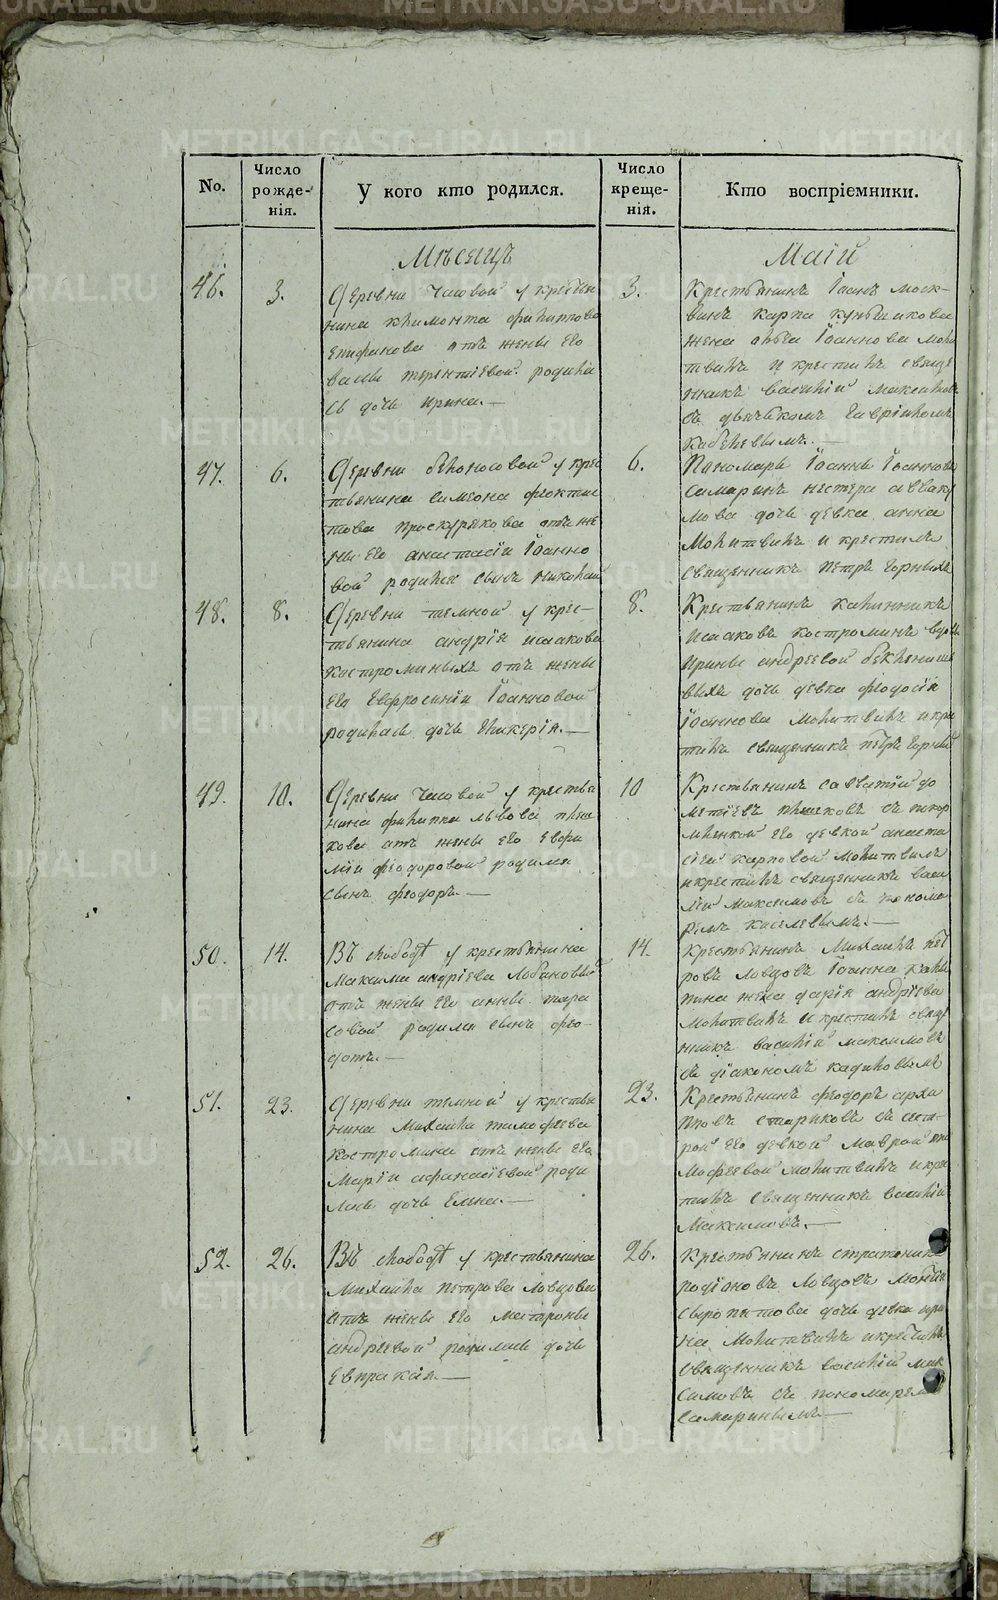 No.
Число рожденія.
У кого кто родился.
Число крещенія.
Кто воспріемники.
Мѣсяцъ
Маій
46.
3.
Деревни Часовой у крестья
нина Климонта Филиппова
Епифанова отъ жены его
Терентіевой родила
сь дочь Ирина.—
3.
Крестьянинъ Іоанъ Моск-
винъ Карпа
жена Іоаннова моли
твилъ и крестилъ свяще
нникъ Василій Максимовъ
съ дьячькомъ Гавріиломъ
47.
6.
Деревни Бѣлоносовой у крес
тьянина Симеона Феокти
стова Проскурякова отъ же
ны его Анастасіи Іоанно
вой родился сынъ Николай
6.
Пономарь Іоаннъ Іоанновъ
Самаринъ Нестера Аввак
мова дочь девка Анна
Молитвилъ и крестилъ
священникъ Петръ Горныхъ
48.
8.
Деревни Темной у крес-
тьянина Андрія Исакова
Костроминыхъ отъ жены
его Евфросиніи Іоанновой
родилась дочь Гликерія.—
8.
Крестьянинъ Калинникъ
Исаковъ Костроминъ вдовы
Ирины Андреевой
выхъ дочь девка Феодосія
Іоаннова молитвилъ и кре
тилъ священникъ Петръ Горный
49.
10.
Деревни Часовой у крестья
нина Филиппа Львова
кова отъ жены его Евфи
міи Феодоровой родился
сынъ Феодоръ.—
10
Крестьянинъ Савватій До
метіевъ съ
его девкой Анаста
сіей Карповой молитвилъ
и крестилъ священникъ Васи
лій Максимовъ съ понома
ремъ Киселевымъ.—
50.
14.
Въ слободѣ у крестьянина
Максима Андріева Лобановыхъ
отъ жены его Анны Тара
совой родился сынъ Фео-
дотъ.—
14.
Крестьянинъ Михаилъ Пет
ровъ Ловцовъ Іоанна Кали
нина жена Дарія Андріева
Молитвилъ и крестилъ свящ
нникъ Василій Максимовъ
съ діакономъ Кадиловымъ
51.
23.
Деревни Темной у крестья
нина Михаила Тимофеева
Костромина отъ жены его
Маріи Афанасіевой роди
лась дочь Елена.—
23.
Крестьянинъ Феодоръ
повъ Стариковъ съ сест-
рой его девкой Маврой
мофеевой молитвилъ и кре
тилъ священникъ Василій
Максимовъ.—
52.
26.
Въ слободѣ у крестьянина
Михаила Петрова Ловцова
отъ жены его Матроны
Андреевой родилась дочь
Евпракія.—
26.
Крестьянинъ Стратоникъ
Родіоновъ Ловцовъ
Сыропятова дочь девка Ири
на Молитвилъ и крестилъ
священникъ Василій Мак
симовъ съ пономаремъ
Самаринымъ.—
METRIKI.GASO-URAL.RU